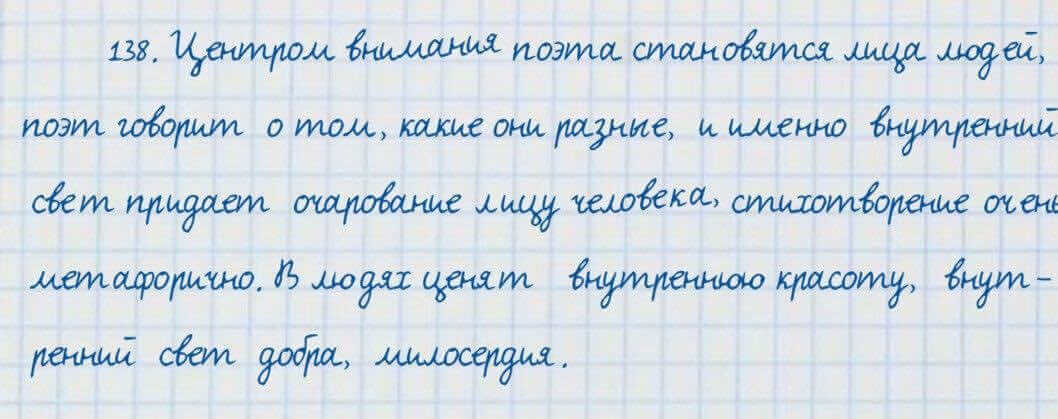 138. Центром внимания поэта становятся лица людей,
поэт говорит о том, какие они разные, и именно внутренний
свет придает очарование лицу человека, стихотворение очень
метафорично. В людях ценят внутреннюю красоту, внут-
ренний свет добра, милосердия.